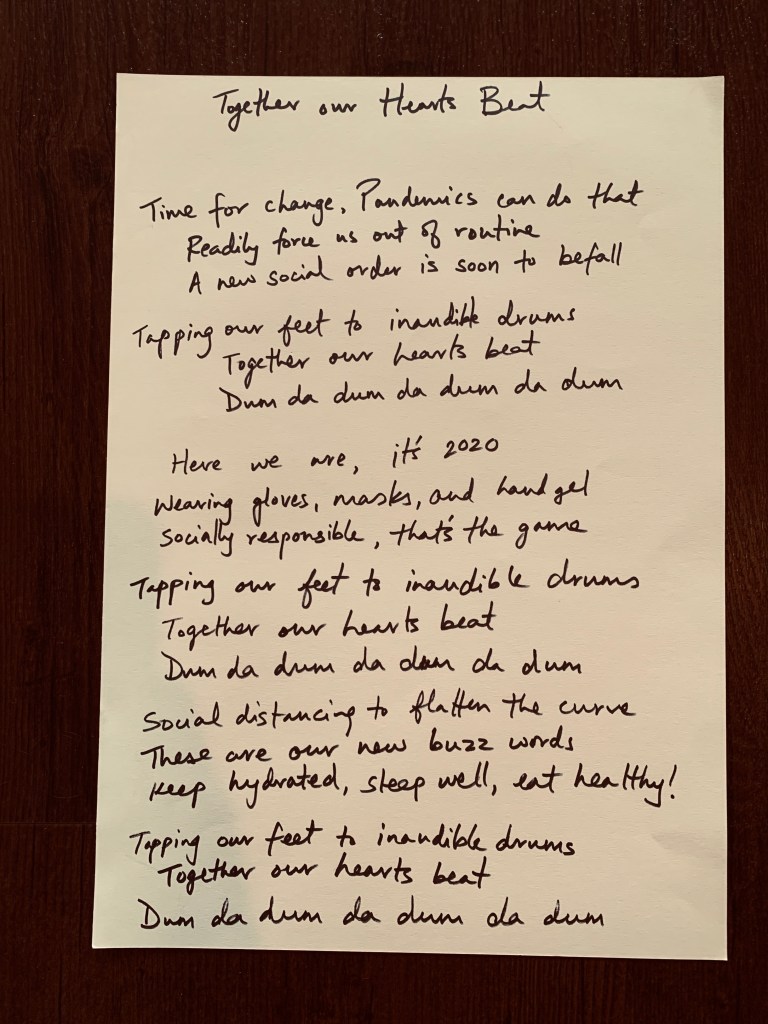 Together our Hearts Beat
Time for change, Pandemics can do that
Readily force us out of routine
A new social order is soon to befall
Tapping our feet to inaudible drums
Together our hearts beat
Dum da dum da dum da dum
Here we are, it's 2020
Wearing gloves, masks, and hand gel
Socially responsible, that's the game
Tapping our feet to inaudible drums
Together our hearts beat
Dum da drum da dum da dum
Social distancing to flatten the curve
These are our new buzz words
Keep hydrated, sleep well, eat healthy!
Tapping our feet to inaudible drums
Together our hearts beat
Dum da dum da dum da dum